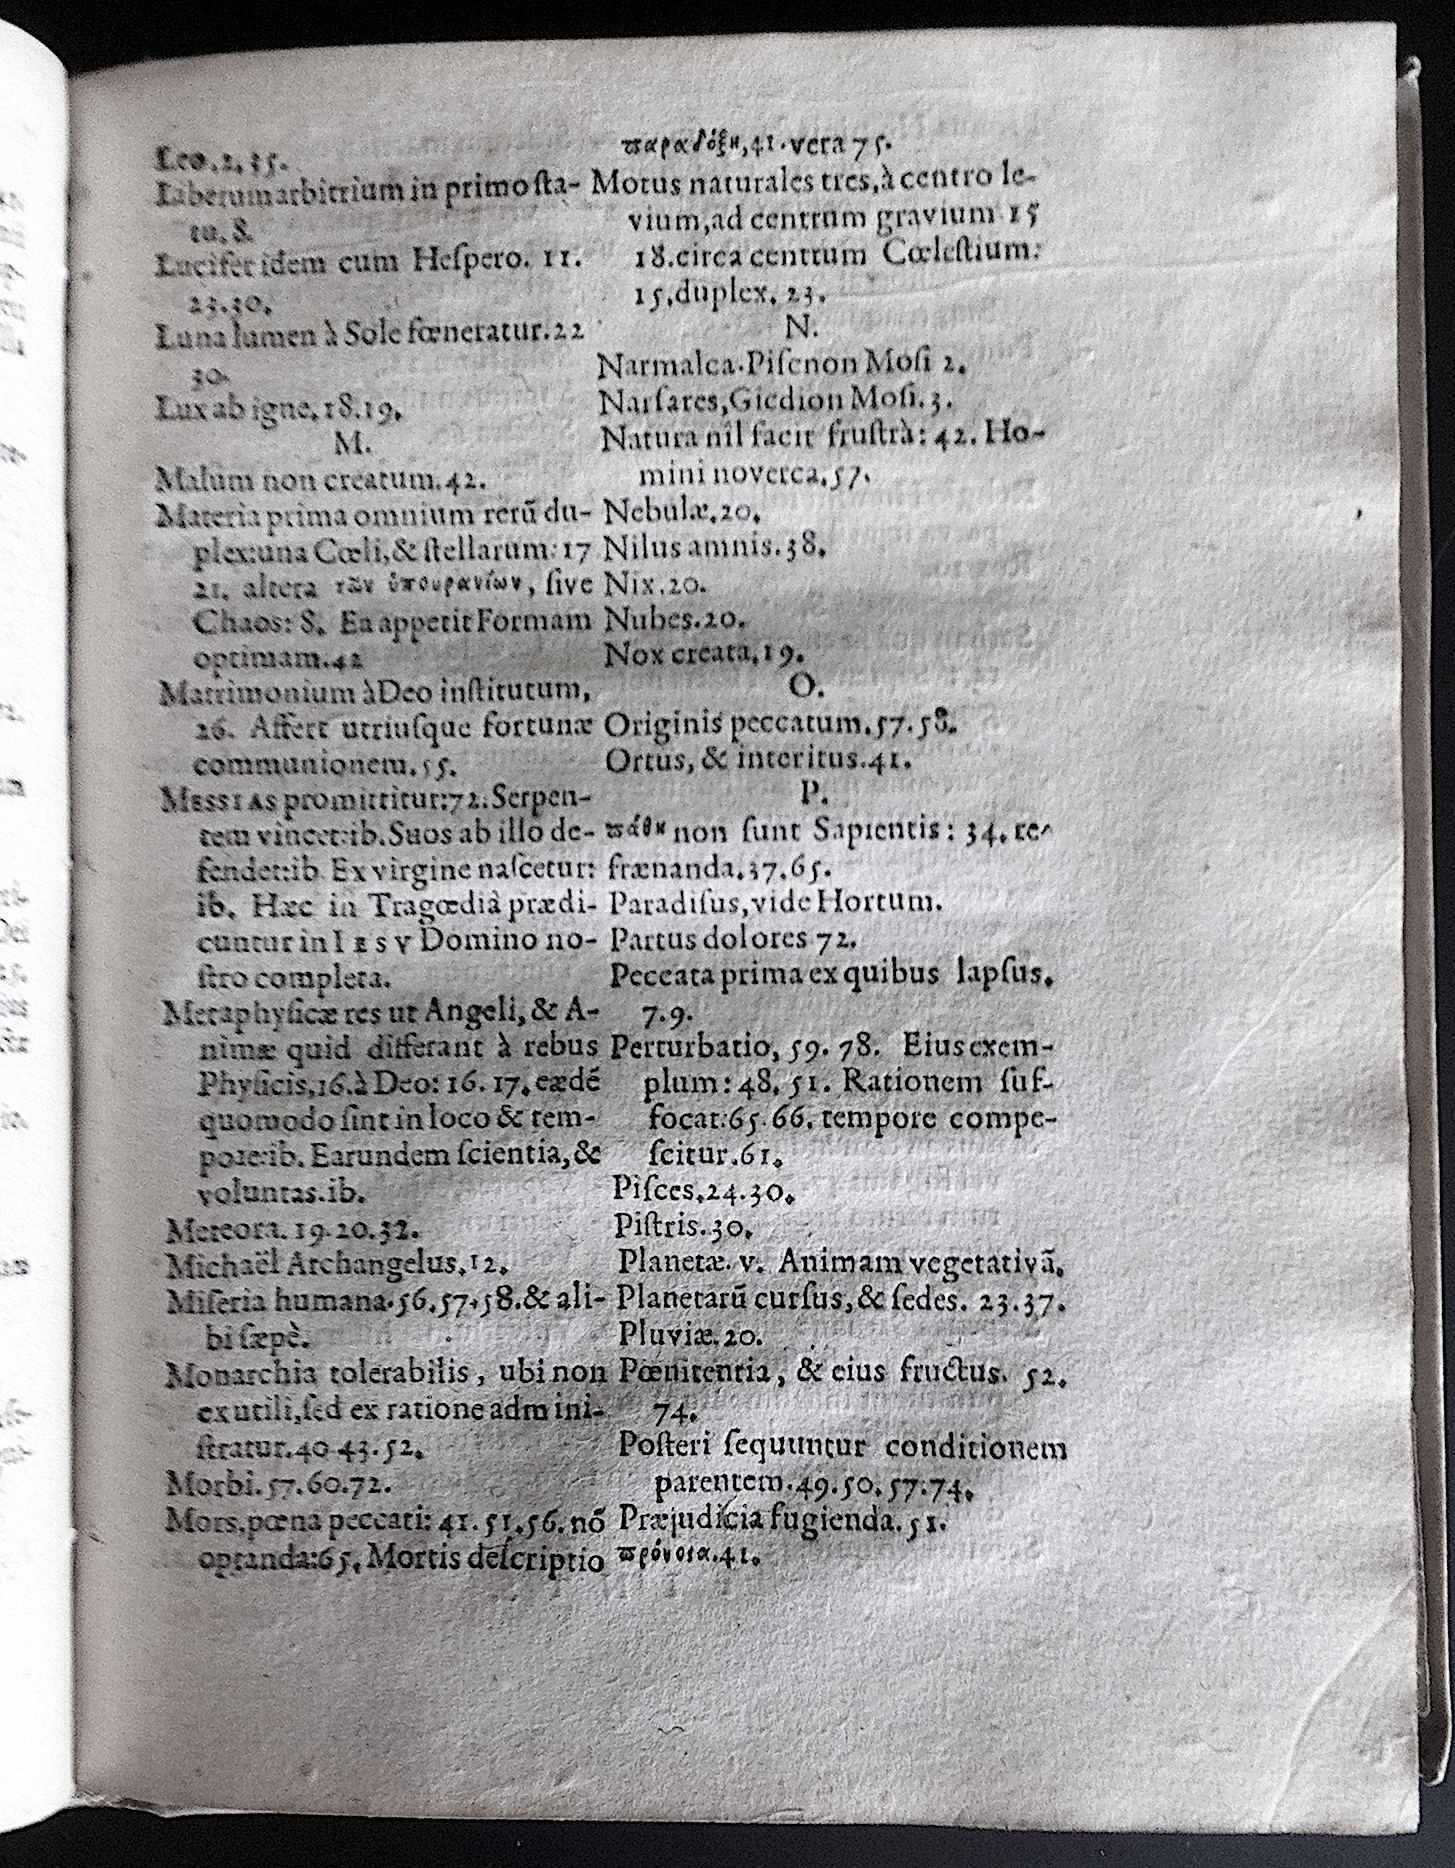 Leo.2.35.
Liberum arbitrium in primo ſta-
tu.8.
Lucifer idem cum Heſpero. 11.
23.30.
Luna lumen à Sole fœneratur.22
30.
Lux ab igne.18.19.
M.
Malum non creatum.42.
Materia prima omnium rerũ du-
plex:una Cœli,& ſtellarum:17
21. altera τῶν ὑπουρανίων, ſive
Chaos: 8. Ea appetit Formam
optimam.42
Matrimonium à Deo inſtitutum,
26. Affert utriuſque fortunæ
communionem.55.
MESSIAS promittitur:72.Serpen-
tem vincet:ib.Suos ab illo de-
fendet:ib Ex virgine naſcetur:
ib. Hæc in Tragœdiâ prædi-
cuntur in IESV Domino no-
ſtro completa.
Metaphyſicæ res ut Angeli, & A-
nimæ quid differant à rebus
Phyſicis,16.à Deo: 16.17.eædẽ
quomodo ſint in loco & tem-
pore:ib. Earundem ſcientia,&
voluntas.ib.
Meteora. 19.20.32.
Michaël Archangelus.12.
Miſeria humana.56.57.58.& ali-
bi ſæpè.
Monarchia tolerabilis, ubi non
ex utili,ſed ex ratione admini-
ſtratur.40 43.52.
Morbi.57.60.72.
Mors,pœna peccati: 41.51.56.nõ
optanda:65. Mortis deſcriptio
παραδόξη,41.vera 75.
Motus naturales tres,à centro le-
vium,ad centrum gravium 15
18.circa centrum Cœleſtium:
15,duplex. 23.
N.
Narmalca.Piſcnon Moſi 2.
Narſares,Giedion Moſi.3.
Natura nil facit fruſtrà: 42. Ho-
mini noverca.57.
Nebulæ.20.
Nilus amnis.38.
Nix.20.
Nubes.20.
Nox creata,19.
O.
Originis peccatum.57.58.
Ortus, & interitus.41.
P.
πάθη non ſunt Sapientis: 34. re-
frænanda.37.65.
Paradiſus,vide Hortum.
Partus dolores 72.
Peccata prima ex quibus lapſus.
7.9.
Perturbatio, 59. 78. Eius exem-
plum: 48. 51. Rationem ſuf-
focat:65.66. tempore compe-
ſcitur.61.
Piſces.24.30.
Piſtris.30.
Planetæ. v. Animam vegetativã.
Planetarũ curſus, & ſedes. 23.37.
Pluviæ.20.
Pœnitentia, & eius fructus. 52.
74.
Poſteri ſequuntur conditionem
parentem.49.50.57.74.
Præjudicia fugienda.51.
πρόνοια.41.